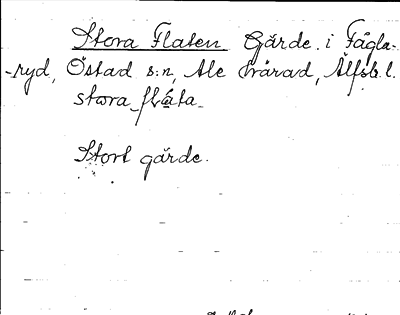 Stora Flaten Gärde i Fågla-
-ryd, Östad s:n, Ale härad, Älfsb. l.
stora flåta
Stort gärde.